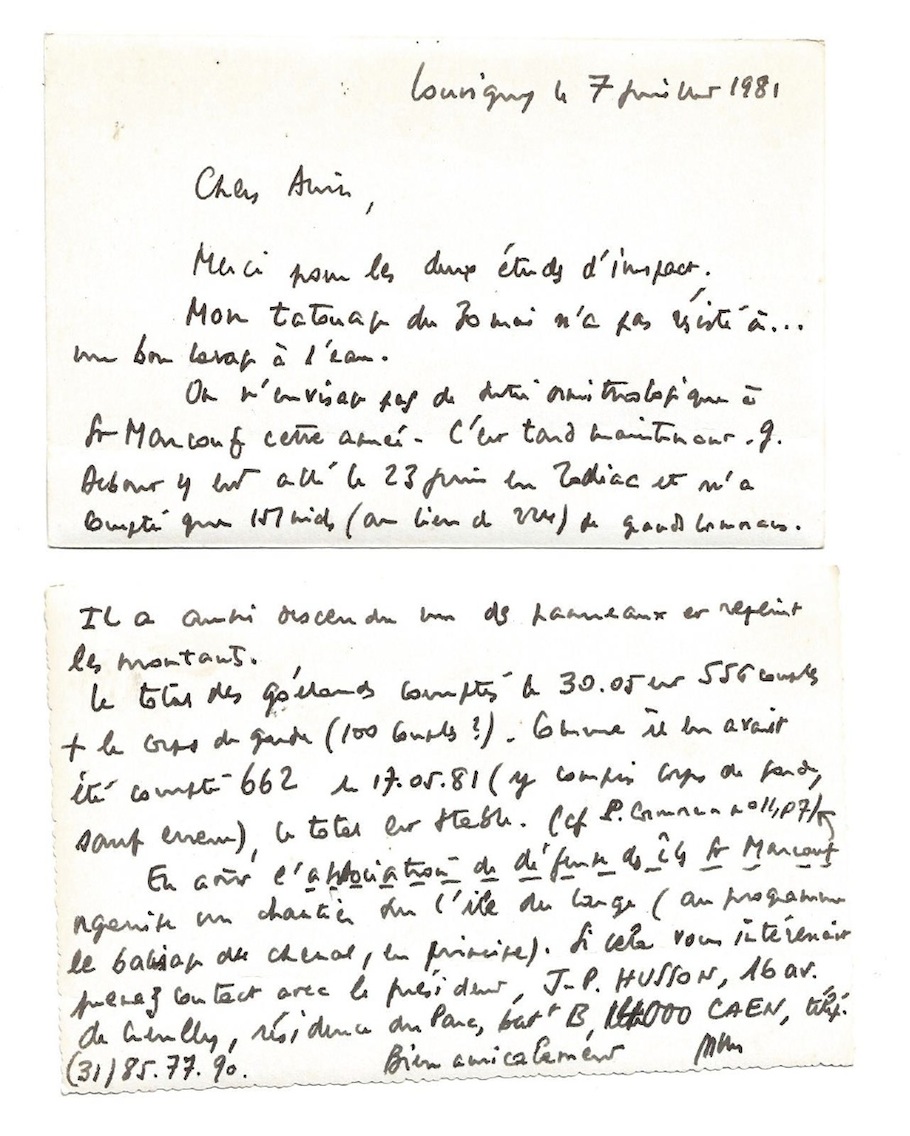 Louvigny le 7 juillet 1981
Chers Amis,
Merci pour les deux études d'impact.
Mon tatouage du 30 mai n'a pas résisté à...
un bon lavage à l'eau.
On n'envisage pas de sortie ornithologique à
St Marcouf cette année. C'est tard maintenant. G.
Debout y est allé le 23 juin en Zodiac et n'a
compté que 157 nids (au lieu de 224) de grands cormorans.
Il a aussi descendu un des panneaux et repeint
les montants.
Le total des goélands comptés le 30.05 est 556 couples
+ le corps de garde (100 couples ?). Comme il en avait
été compté 662 le 17.05.81 (y compris corps de garde,
sauf erreur), le total est stable. (cf P. Cormoran n° 11, p7)
En août l'association de défense des îles St Marcouf
organise un chantier sur l'île du large (au programme
le balisage du chenal, en principe). Si cela vous intéressait
prenez contact avec le président, J-P. HUSSON, 16 av.
de , résidence du Parc, bat^t B, 14000 CAEN, télé.
(31) 85.77.90. Bien amicalement